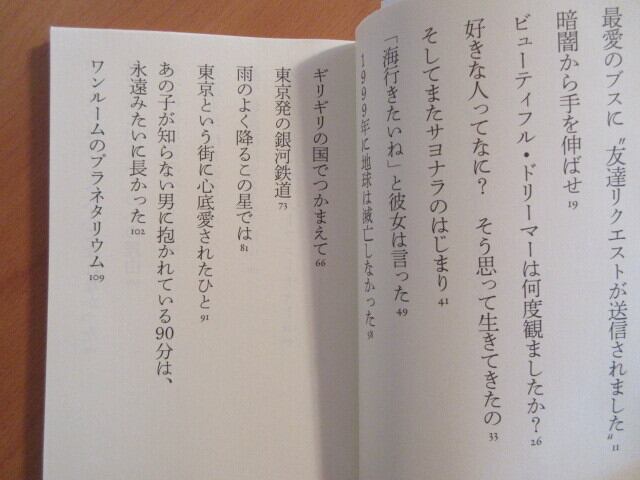 最愛のブスに〝友達リクエストが送信されました〟11
暗闇から手を伸ばせ 19
ビューティフル・ドリーマーは何度観ましたか? 26
好きな人ってなに? そう思って生きてきたの 33
そしてまたサヨナラのはじまり 41
「海行きたいね」と彼女は言った 49
1999年に地球は滅亡しなかった 58
ギリギリの国でつかまえて 66
東京発の銀河鉄道 73
雨のよく降るこの星では 81
東京という街に心底愛されたひと 91
あの子が知らない男に抱かれている90分は、
永遠みたいに長かった 102
ワンルームのプラネタリウム 109